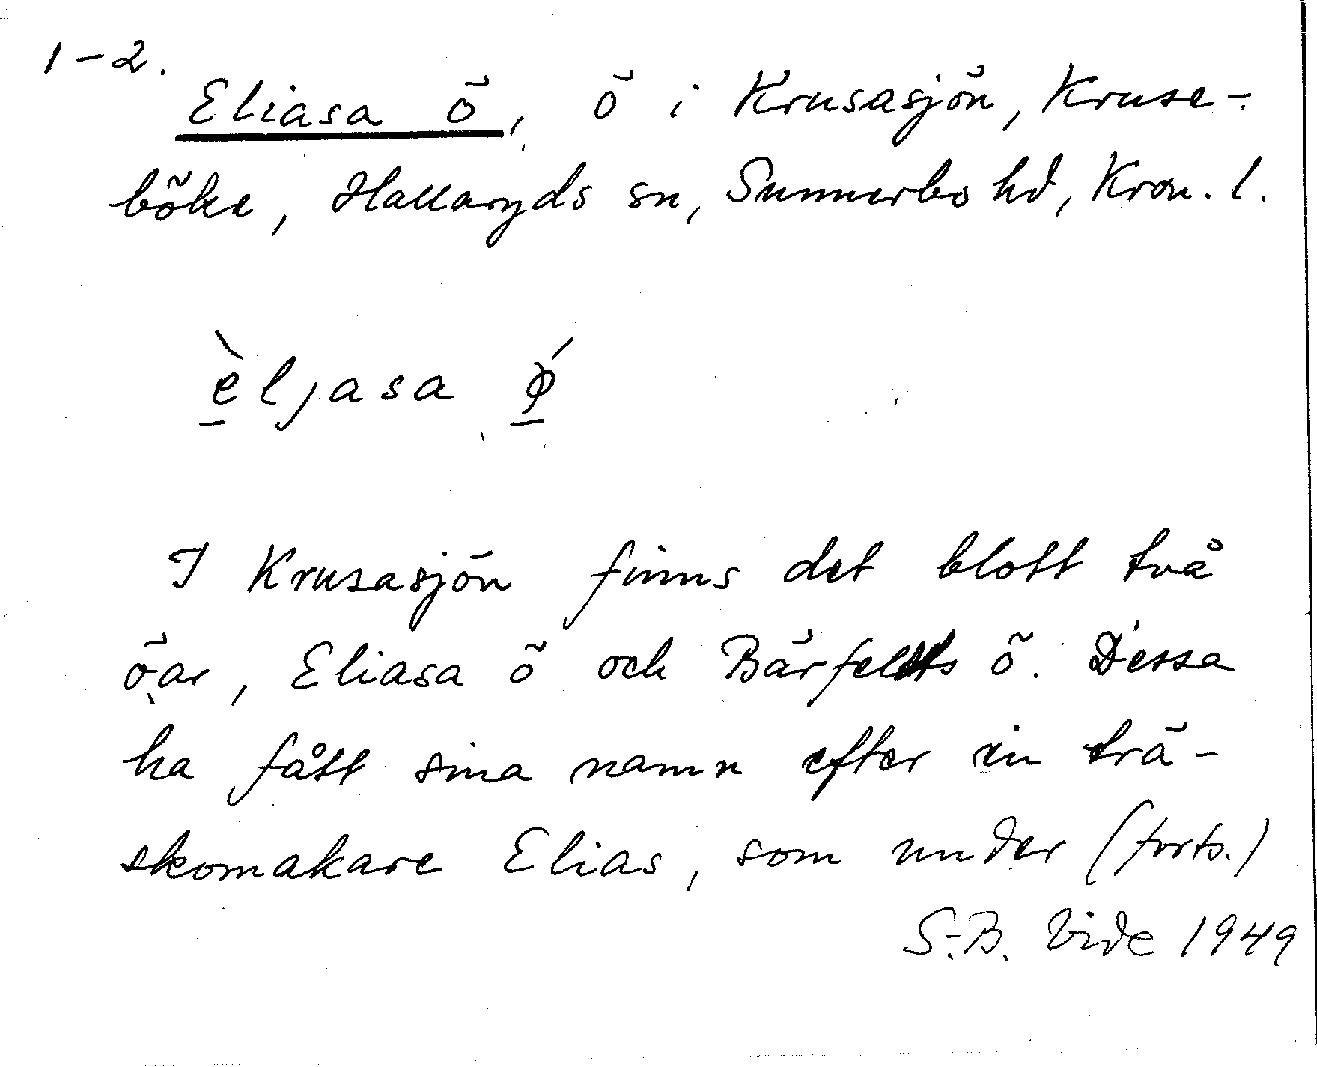 1-2.
Eliasa ö, ö i Krusasjön, Kruse-
böke, Hallaryds sn, Sunnerbo hd, Kron. l.
èljasa ǿ
I Krusasjön finns det blott två
öar, Eliasa ö och Bärfelts ö. Dessa
ha fått sina namn efter en trä-
skomakare Elias, som under (forts.)
S.-B. Vide 1949